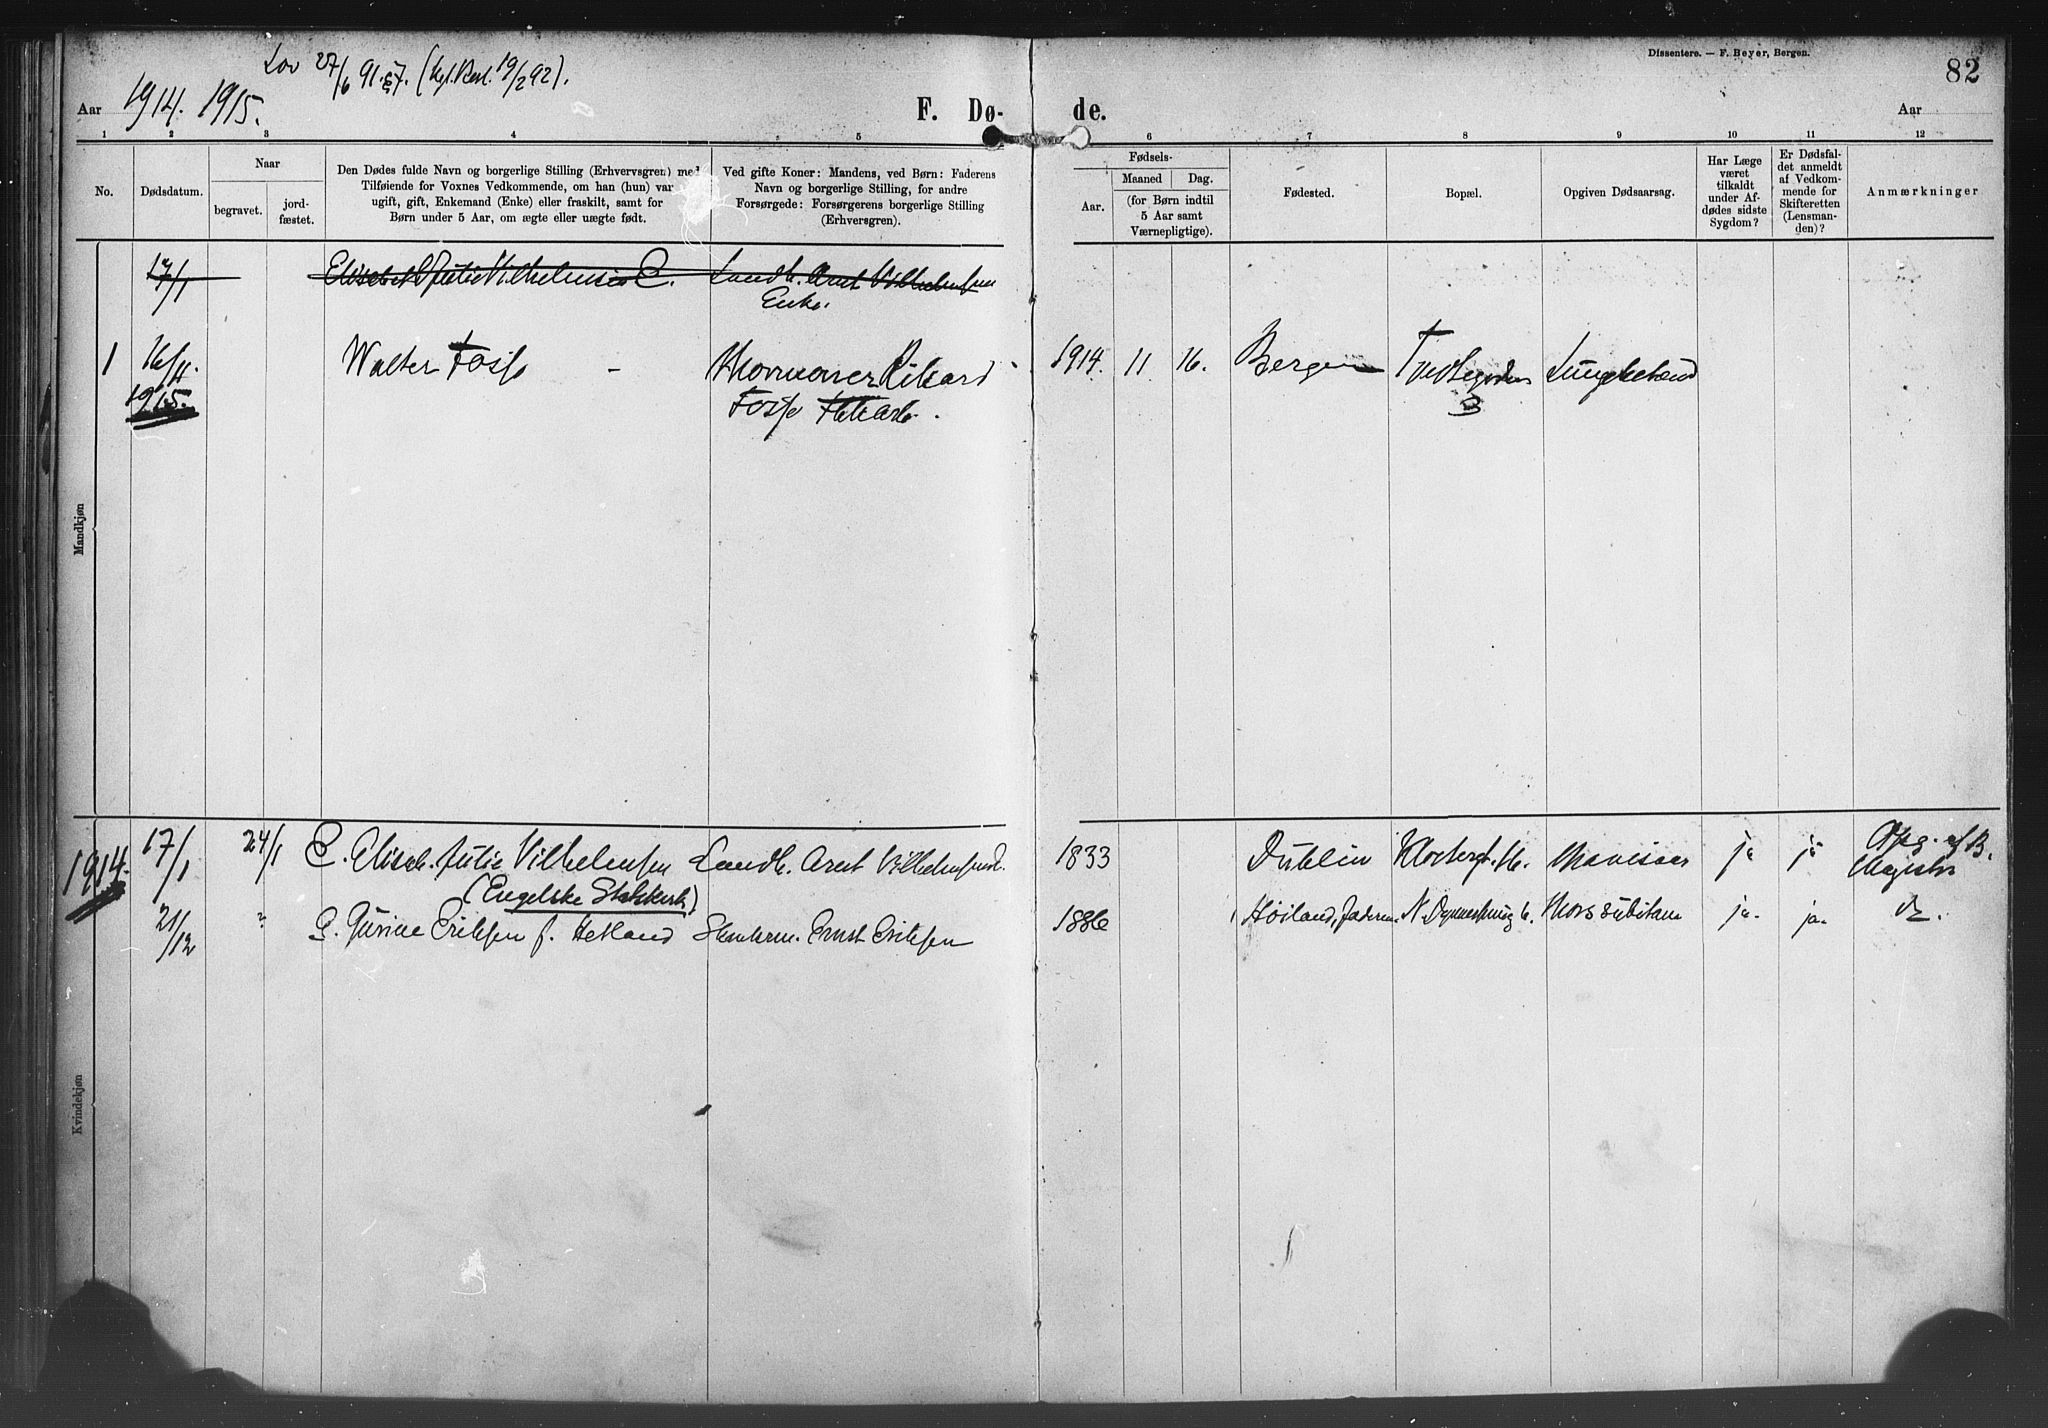 Dissentere. — F. Beyer, Bergen.
Lov 27/6 91. §7. (kgl. Besl. 19/2 92).
82
Aar 1914. 1915.
F. Dø-
de.
Aar
1 2 3 4 5 6 7 8 9 10 11 12
No.
Dødsdatum.
Naar
begravet.
jord-
fæstet.
Den Dødes fulde Navn og borgerlige Stilling (Erhvervsgren) med
Tilføiende for Voxnes Vedkommende, om han (hun) var
ugift, gift, Enkemand (Enke) eller fraskilt, samt for
Børn under 5 Aar, om ægte eller uægte født.
Ved gifte Koner: Mandens, ved Børn: Faderens
Navn og borgerlige Stilling, for andre
Forsørgede: Forsørgerens borgerlige Stilling
(Erhversgren).
Fødsels-
Aar.
Maaned
Dag.
(for Børn indtil
5 Aar samt
Værnepligtige).
Fødested.
Bopæl.
Opgiven Dødsaarsag.
Har Læge
været
tilkaldt
under Af-
dødes sidste
Sygdom?
Er Dødsfal-
det anmeldt
af Vedkom-
mende for
Skifteretten
(Lensman-
den)?
Anmærkninger
17/1 Elisabeth Julie Vilhelmsen E. Landh. Arnt Vilhelmsen
Enke.
Mandkjøn
1 16/11. Walter Foss - Rikard 1914. 11 16. Bergen
1915. Foss
3
1914. 17/1 24/1 E. Elisab. Julie Vilhelmsen Landh. Arnt Vilhelmsen 1833 Dublin Klostergt. 16. Marasmus ja ja Opg. af B.
(Engelske Statskirke) Magistr
21/12 " G. Gurine Eriksen f. Hetland Ernst Eriksen 1886 Høiland, Jæderen Mors subitan ja. ja. Do.
Kvindekjøn